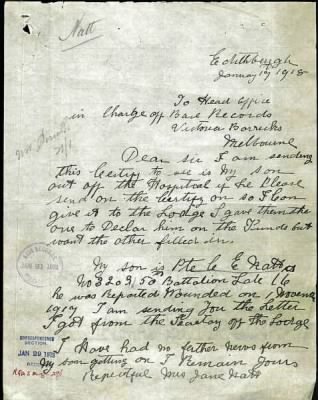 Natt
Edithburgh
January 19 1918
To Head Office
in Charge off Base Records
Victoria Barricks
Melbourne
Dear sir I am sending
this Certify to see is My son
out off the Hospital if so Please
send on the Certify on so I Can
give it to the Lodge I gave them the
one to Declar him on the Funds but
want the other filled in.
My son is Pte C E Natt
No 3203 50 Battalion Late 16
he was Reported Wounded on 1 November
1917 I am sending You the Letter
I got from the Seactary off the Lodge
I Have had no ferther news from
My son getting on I Remain Yours
Repectful Mrs Jane Natt
CORRESPONDENCE
SECTION.
JAN 29 1918